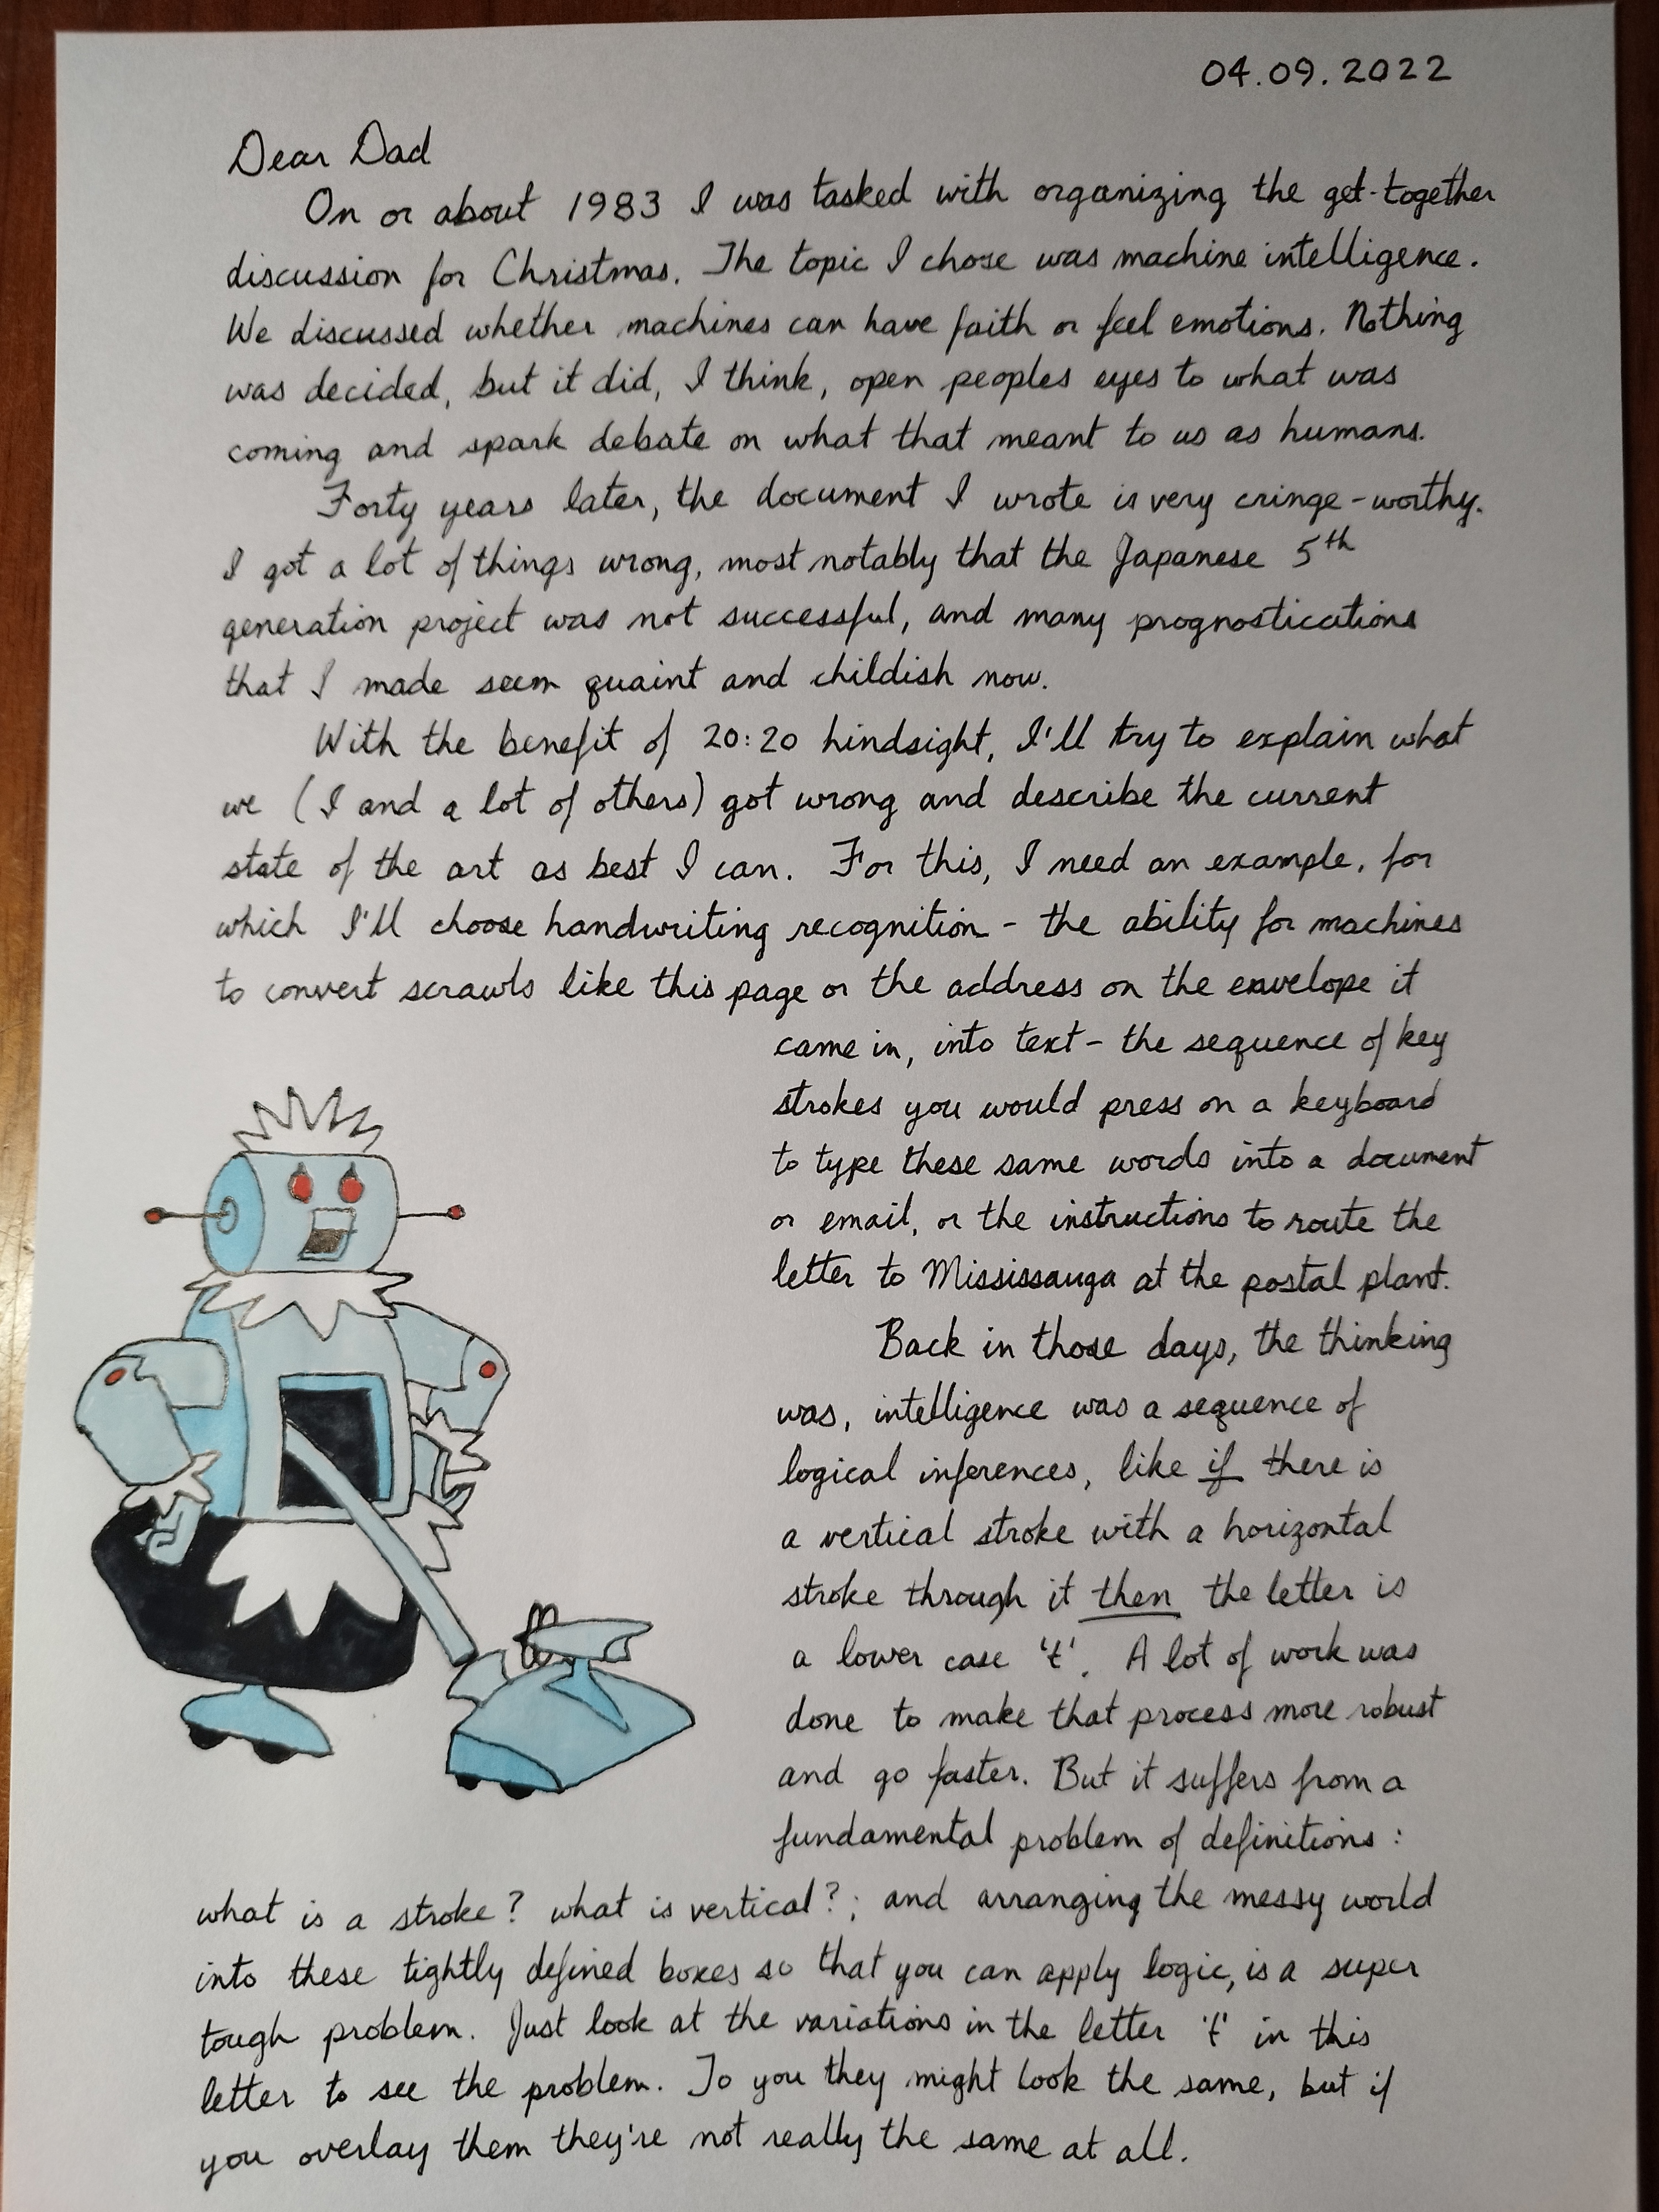 04.09.2022
Dear Dad
On or about 1983 I was tasked with organizing the get-together
discussion for Christmas. The topic I chose was machine intelligence.
We discussed whether machines can have faith or feel emotions. Nothing
was decided, but it did, I think, open peoples eyes to what was
coming and spark debate on what that meant to us as humans.
Forty years later, the document I wrote is very cringe-worthy.
I got a lot of things wrong, most notably that the Japanese 5th
generation project was not successful, and many prognostications
that I made seem quaint and childish now.
With the benefit of 20:20 hindsight, I'll try to explain what
we (I and a lot of others) got wrong and describe the current
state of the art as best I can. For this, I need an example, for
which I'll choose handwriting recognition - the ability for machines
to convert scrawls like this page or the address on the envelope it
came in, into text - the sequence of key
strokes you would press on a keyboard
to type these same words into a document
or email, or the instructions to route the
letter to Mississauga at the postal plant.
Back in those days, the thinking
was, intelligence was a sequence of
logical inferences, like if there is
a vertical stroke with a horizontal
stroke through it then the letter is
a lower case 't'. A lot of work was
done to make that process more robust
and go faster. But it suffers from a
fundamental problem of definitions:
what is a stroke? what is vertical?; and arranging the messy world
into these tightly defined boxes so that you can apply logic, is a super
tough problem. Just look at the variations in the letter 't' in this
letter to see the problem. To you they might look the same, but if
you overlay them they're not really the same at all.